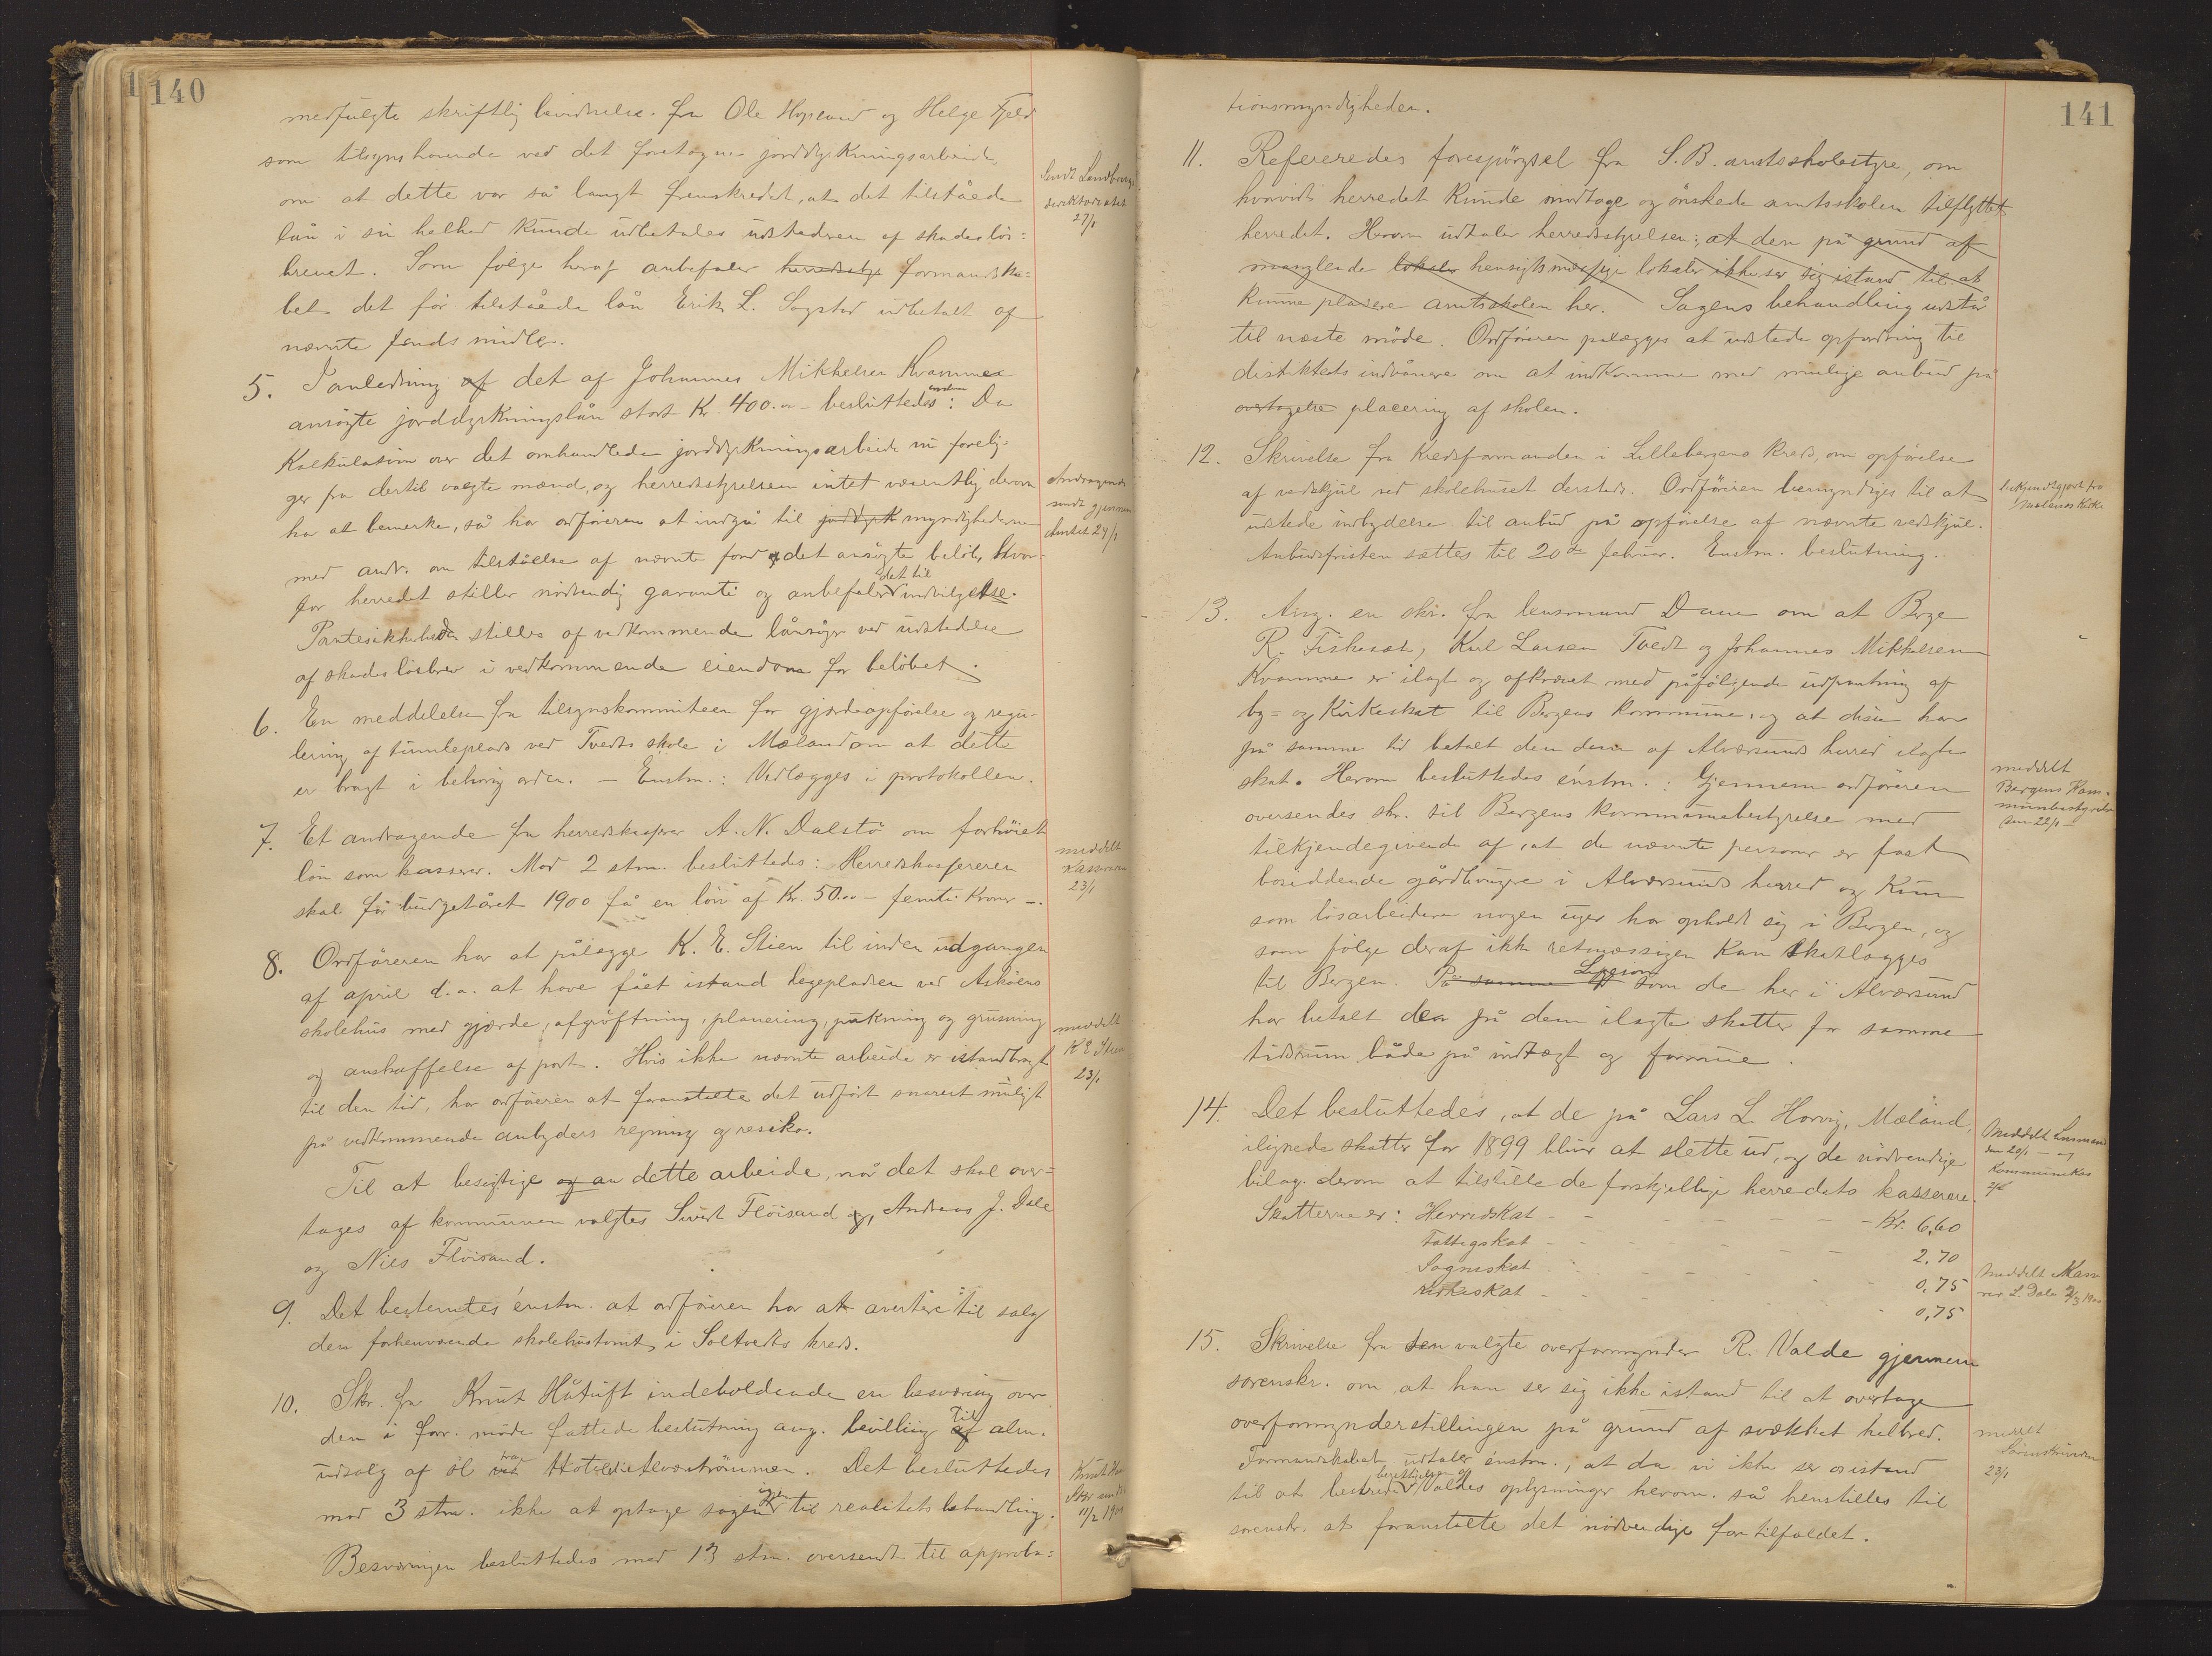 140
medfulgte skriftlig bevidnelse fra Ole Hopland og Helge Fjeld
som tilsynshavende ved det foretagne jorddyrkningsarbeide
om at dette var så langt fremskredet, at det tilståede
lån i sin helhed kunde udbetales udstederen af skadeslös=
brevet. Som fölge heraf anbefaler herredsstyr formandska=
bet det för tilståede lån Erik L. Sagstad udbetalt af
nævnte fonds midler.
Sendt Landbrugs
direktoratet
27/1
5. I anledning af det af Johannes Mikkelsen Kvamme
ansögte jorddyrkningslån stort Kr. 400.00 - besluttedes enstem: Da
Kalkulation over det omhandlede jorddyrkningsarbeide nu forelig=
ger fra dertil valgte mænd, og herredsstyrelsen intet væsentlig derom
har at bemerke, så har ordföreren at indgå til jorddyrk myndighederne
med andr. om tilståelse af nævnte fond af det ansögte belöb, hvor=
for herredet stiller nödvendig garanti og anbefaler det til indvilgelse.
Pantesikkerheden stilles af vedkommende lånsöger ved udstedelse
af skadeslösbrev i vedkommende eiendom for belöbet.
Andragende
sendt gjennem
Amtet 24/1
6. En meddelelse fra tilsynskommiteen for gjærdeopförelse og regu=
lering af tumleplads ved Tvedts skole i Mæland om at dette
er bragt i behörig orden. - Enstm.: Vedlægges i protokollen.
7. Et andragende fra herredskasserer A. N. Dalstö om forhöiet
lön som kasserer. Mod 2 stm. besluttedes: Herredskassereren
skal for budgetåret 1900 få en lön af Kr. 50.00 - femti Kroner -.
meddelt
Kassereren
23/1
8. Ordföreren har at pålægge K. E. Stien til inden udgangen
af april d.a. at have fået istand legepladsen ved Asköens
skolehus med gjærde, afgröftning, planering, pukning og grusning
og anskaffelse af port. Hvis ikke nævnte arbeide er istandbragt
til den tid, har ordföreren at foranstalte det udfört snarest muligt
på vedkommende anbyders regning og resiko.
meddelt
K E Stien
23/1
Til at besigtige og an dette arbeide, når det skal over=
tages af kommunen valgtes Sivert Flöisand og, Andreas J. Dale
og Nils Flöisand.
9. Det bestemtes énstm. at ordföreren har at avertere til salg
den forhenværende skolehustomt i Soltvedts kreds.
10. Skr. fra Knut Håtuft indeholdende en besværing over
den i forr. möde fattede beslutning ang. bevilling af Til alm.
udsalg af öl ved fra Hotel Alverströmmen. Det besluttedes
mod 3 stm. ikke at optage sagen igjen til realitetsbehandling.
Besværingen besluttedes med 13 stm. oversendt til approba=
11/2 1900
141
tionsmyndigheden.
11. Refereredes forespörgsel fra S. B. amtsskolestyre, om
hvorvidt herredet kunde modtage og önskede amtsskolen tilflyttet
herredet. Herom udtaler herredsstyrelsen: at den på grund af
manglende lokaler hensigtsmæssige lokaler ikke ser sig istand til at
kunne placere amtsskolen her. Sagens behandling udstår
til næste möde. Ordföreren pålægges at udstede opfordring til
distriktets indvånere om at indkomme med mulige anbud på
overtagelse placering af skolen.
12. Skrivelse fra kredsformanden i Lillebergens kreds, om opförelse
af vedskjul ved skolehuset dersteds. Ordföreren bemyndiges til at
udstede indbydelse til anbud på opförelse af nævnte vedskjul.
Anbudsfristen sættes til 20de februar. Enstm. beslutning.
bekjendtgjort fra
Mælands Kirke
13. Ang. en skr. fra lensmand Daae om at Berge
R. Fiskeset, Karl Larsen Tvedt og Johannes Mikkelsen
Kvamme er ilagt og afkrævet med påfölgende udpantning af
by= og Kirkeskat til Bergens kommune, og at disse har
på samme tid betalt den dem af Alversunds herred ilagte
skat. Herom besluttedes énstm.: Gjennem ordföreren
oversendes skr. til Bergens kommunebestyrelse med
tilkjendegivende af, at de nævnte personer er fast
bosiddende gårdbrugere i Alversunds herred og kun
som lösarbeidere nogen uger har opholdt sig i Bergen, og
som fölge deraf ikke retmæssigen kan skatlægges
til Bergen. På samme Ligesom som de her i Alversund
har betalt den på dem ilagte skatter for samme
tidsrum både på indtægt og formue.
meddelt
Bergens Kom=
munebestyrelse
den 22/1 -
14. Det besluttedes, at de på Lars L. Horvig, Mæland,
ilignede skatter for 1899 bliver at slette ud, og de nödvendige
bilag derom at tilstille de forskjellige herredets kasserere.
Skatterne er: Herredskat - - - Kr. 6,60
Fattigskat - - - 2,70
Sogneskat - - - 0,75
Kirkeskat - - - 0,75
Meddelt Lensmand
den 20/1 - og
Meddelt Kasse
rer L. Dale 2/3 1900
15. Skrivelse fra den valgte overformynder R. Valde gjennem
sorenskr. om, at han ser sig ikke istand til at overtage
overformynderstillingen på grund af svækket helbred.
Formandskabet udtaler énstm., at da vi ikke ser os istand
til at bestride Valdes oplysninger herom, så henstilles til
sorenskr. at foranstalte det nödvendige for tilfaldet.
meddelt
Sorenskriveren
23/1